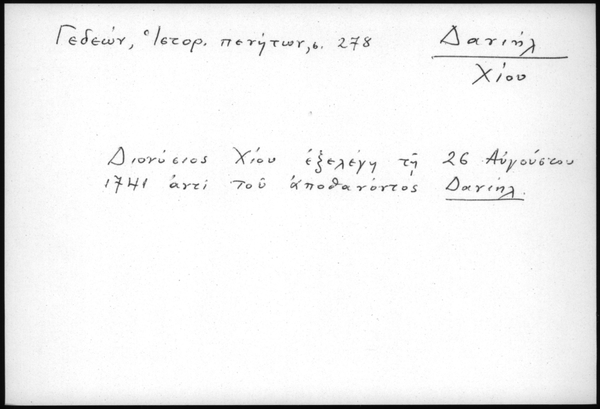 Γεδεών, Ἱστορ. πενήτων, σ. 278
Δανιήλ
Χίου
Διονύσιος Χίου ἐξελέγη τῇ 26 Αὐγούστου
1741 ἀντί τοῦ ἀποθανόντος Δανιήλ.